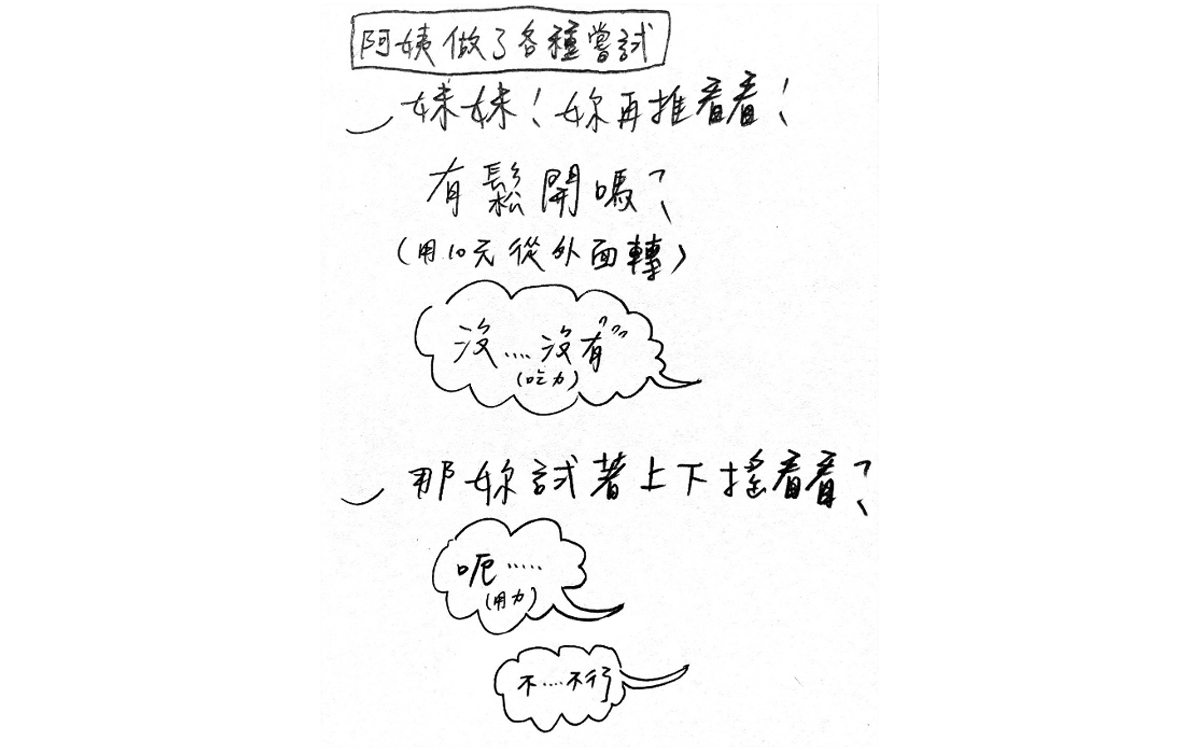 阿姨做了各種嘗試
妹妹!妳再推看看!
有鬆開嗎?
(用10元從外面轉)
沒....沒有
(吃力)
那妳試著上下搖看看?
呃.....
(用力)
不....不行